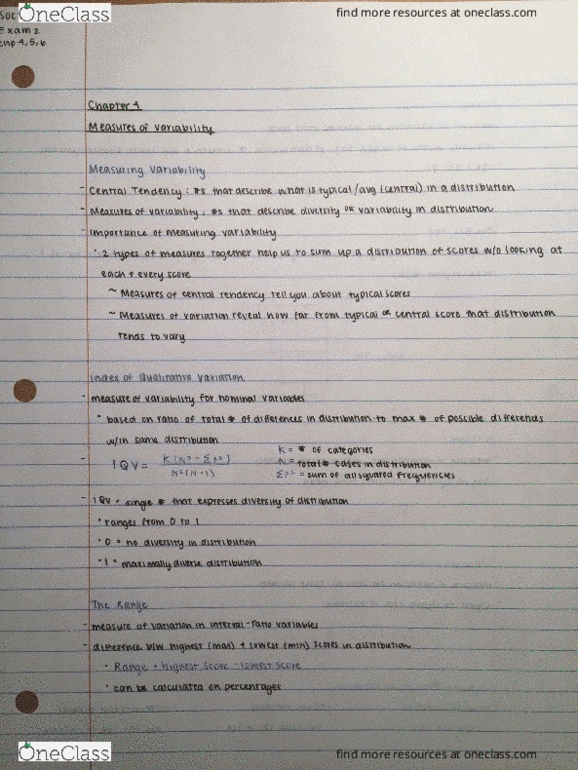 OneClass
find more resources at oneclass.com
Soc
Exam 2
chp 4,5,6
Chapter 4
Measures of variability
Measuring Variability
- Central Tendency: #s that describe what is typical/avg (central) in a distribution
- Measures of variability: #s that describe diversity or variability in distribution
- Importance of measuring variability
• 2 types of measures together help us to sum up a distribution of scores w/o looking at
each + every score
~ Measures of central tendency tell you about typical scores
~ Measures of variation reveal how far from typical or central score that distribution
tends to vary
Index of Qualitative Variation
- measure of variability for nominal variables
• based on ratio of total # of differences in distribution to max # of possible differences
w/in same distribution
- IQV = K(N²-Σf²) / N²(K-1)
K = # of categories
N = total # cases in distribution
Σf² = sum of all squared frequencies
- IQV = single # that expresses diversity of distribution
• ranges from 0 to 1
• 0 = no diversity in distribution
• 1 = maximally diverse distribution
The Range
- measure of variation in interval-ratio variables
- difference b/w highest (max) + lowest (min) scores in distribution
• Range = highest score - lowest score
• can be calculated on percentages
OneClass
find more resources at oneclass.com